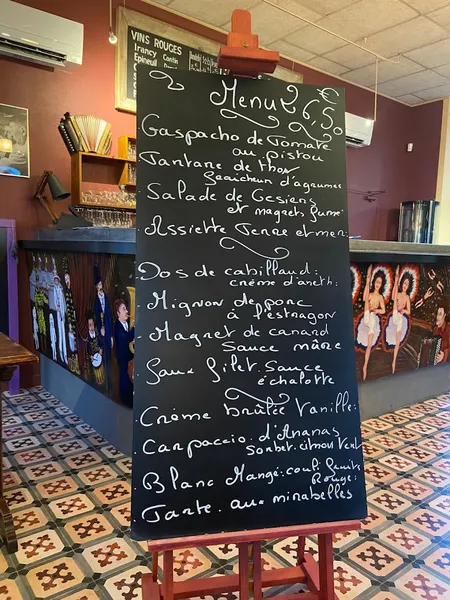 VINS ROUGES
Irancy
Epineuil
Menu 26,50 €
Gaspacho de Tomate
au pistou
Tartare de thon
fraicheur d'agrumes
Salade de Gesiers
et magret fumé
Assiette Terre et mer
Dos de cabillaud:
crème d'aneth:
Mignon de porc
à l'estragon
Magret de canard
sauce mûre
Faux filet. Sauce
échalotte
Crème brûlée Vanille:
Carpaccio d'Ananas
Sorbet. citron Vert
Blanc Mangé: coul: fruits
Rouge:
Tarte. aux mirabelles